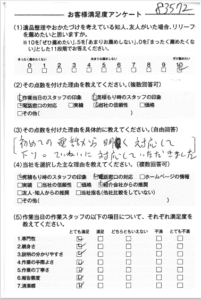 83572
お客様満足度アンケート
(1)遺品整理やおかたづけを考えている知人、友人がいた場合、リリーフ
を薦めたいと思いますか。
※10を「ぜひ薦めたい」、5を「あまりお薦めしない」、0を「まったく薦めたくな
い」とした11段階でお答えください。
0 1 2 3 4 5 6 7 8 9 10
(2)その点数を付けた理由を教えてください。(複数回答可)
作業当日のスタッフの印象 見積もり時のスタッフの印象
電話窓口の対応 実績 当社の信頼性 価格
その他
(3)その点数を付けた理由を具体的に教えてください。(自由回答)
初めての電話から 対応して
下り。ていねいに対応していただきました
(4)当社を選択した主な理由を教えてください。(複数回答可)
見積もり時のスタッフの印象 電話窓口の対応 ホームページの情報
実績 当社の信頼性 価格 紹介会社からの推薦
友人・知人からの推薦 当社しか知らなかった
その他
(5)作業当日の作業スタッフの以下の項目について、それぞれ満足度を
教えてください。
満足 まあ満足 どちらともいえない 不満 とても不満
1.専門性
2.親身さ
3.説明の分かりやすさ
4.作業の手際よさ
5.作業の丁寧さ
6.報告頻度
7.清潔感